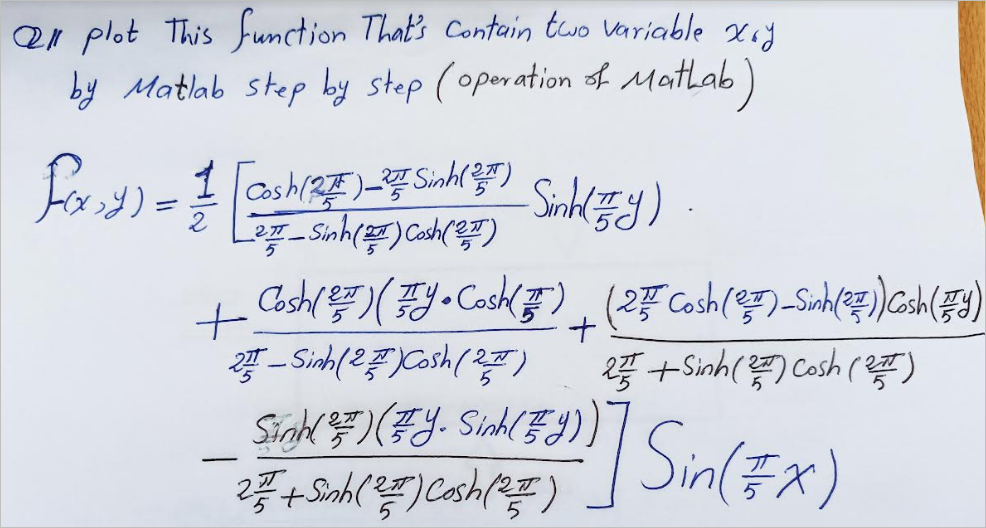 Q1 plot This function That's Contain two variable x,y
by Matlab step by step (operation of MatLab)
f(x,y) = 1/2 [ (Cosh(2π/5) - 2π/5 Sinh(2π/5)) / (2π/5 - Sinh(2π/5) Cosh(2π/5)) Sinh(π/5 y).
+ Cosh(2π/5)(π/5 y • Cosh(π/5) / (2π/5 - Sinh(2π/5)Cosh(2π/5)) + (2π/5 Cosh(2π/5) - Sinh(2π/5))Cosh(π/5 y) / (2π/5 + Sinh(2π/5) Cosh(2π/5))
- Sinh(2π/5)(π/5 y. Sinh(π/5 y)) / (2π/5 + Sinh(2π/5) Cosh(2π/5)) ] Sin(π/5 x)